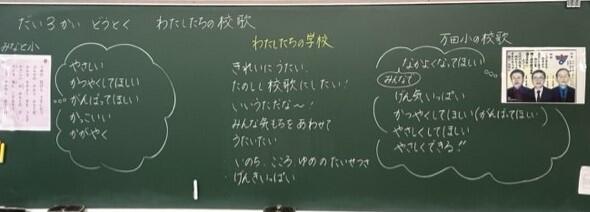 だい3かい どうとく わたしたちの校歌
みなと小
やさしい
かつやくしてほしい
がんばってほしい
かっこいい
かがやく
わたしたちの学校
きれいにうたい、
たのしい校歌にしたい!
いいうただな〜!
みんな気もちをあわせて
うたいたい
いのち、こころ、ゆめのたいせつさ
げんきいっぱい
万田小の校歌
なかよくなってほしい
みんなで
げん気いっぱい
かつやくしてほしい(がんばってほしい)
やさしくしてほしい
やさしくできる!!